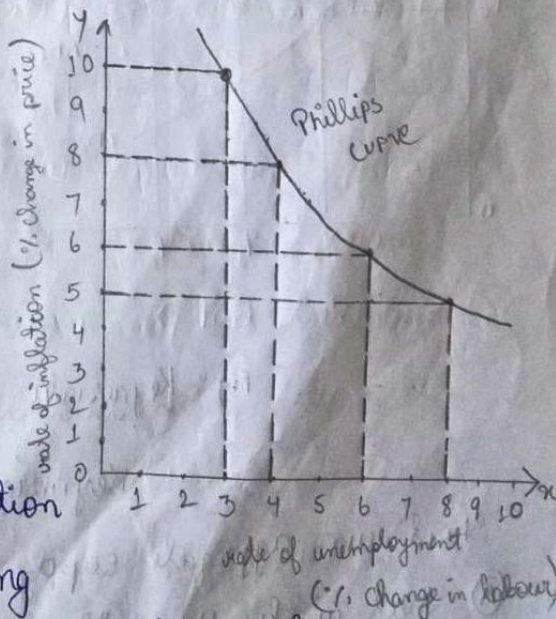 y
10
9
8
7
6
5
4
3
2
1
0
rate of inflation (% change in price)
Phillips
curve
1 2 3 4 5 6 7 8 9 10 x
rate of unemployment
(% change in labour)
tion
ng